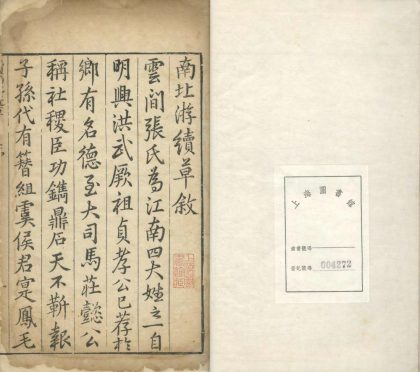 南北游續草敘
雲間張氏為江南四大姓之一自
明興洪武厥祖貞孝公已荐於
鄉有名德至大司馬莊懿公
稱社稷臣功鐫鼎石天不靳報
子孫代有簪組虞侯君寔鳳毛
上海圖書館
登記號碼 004272